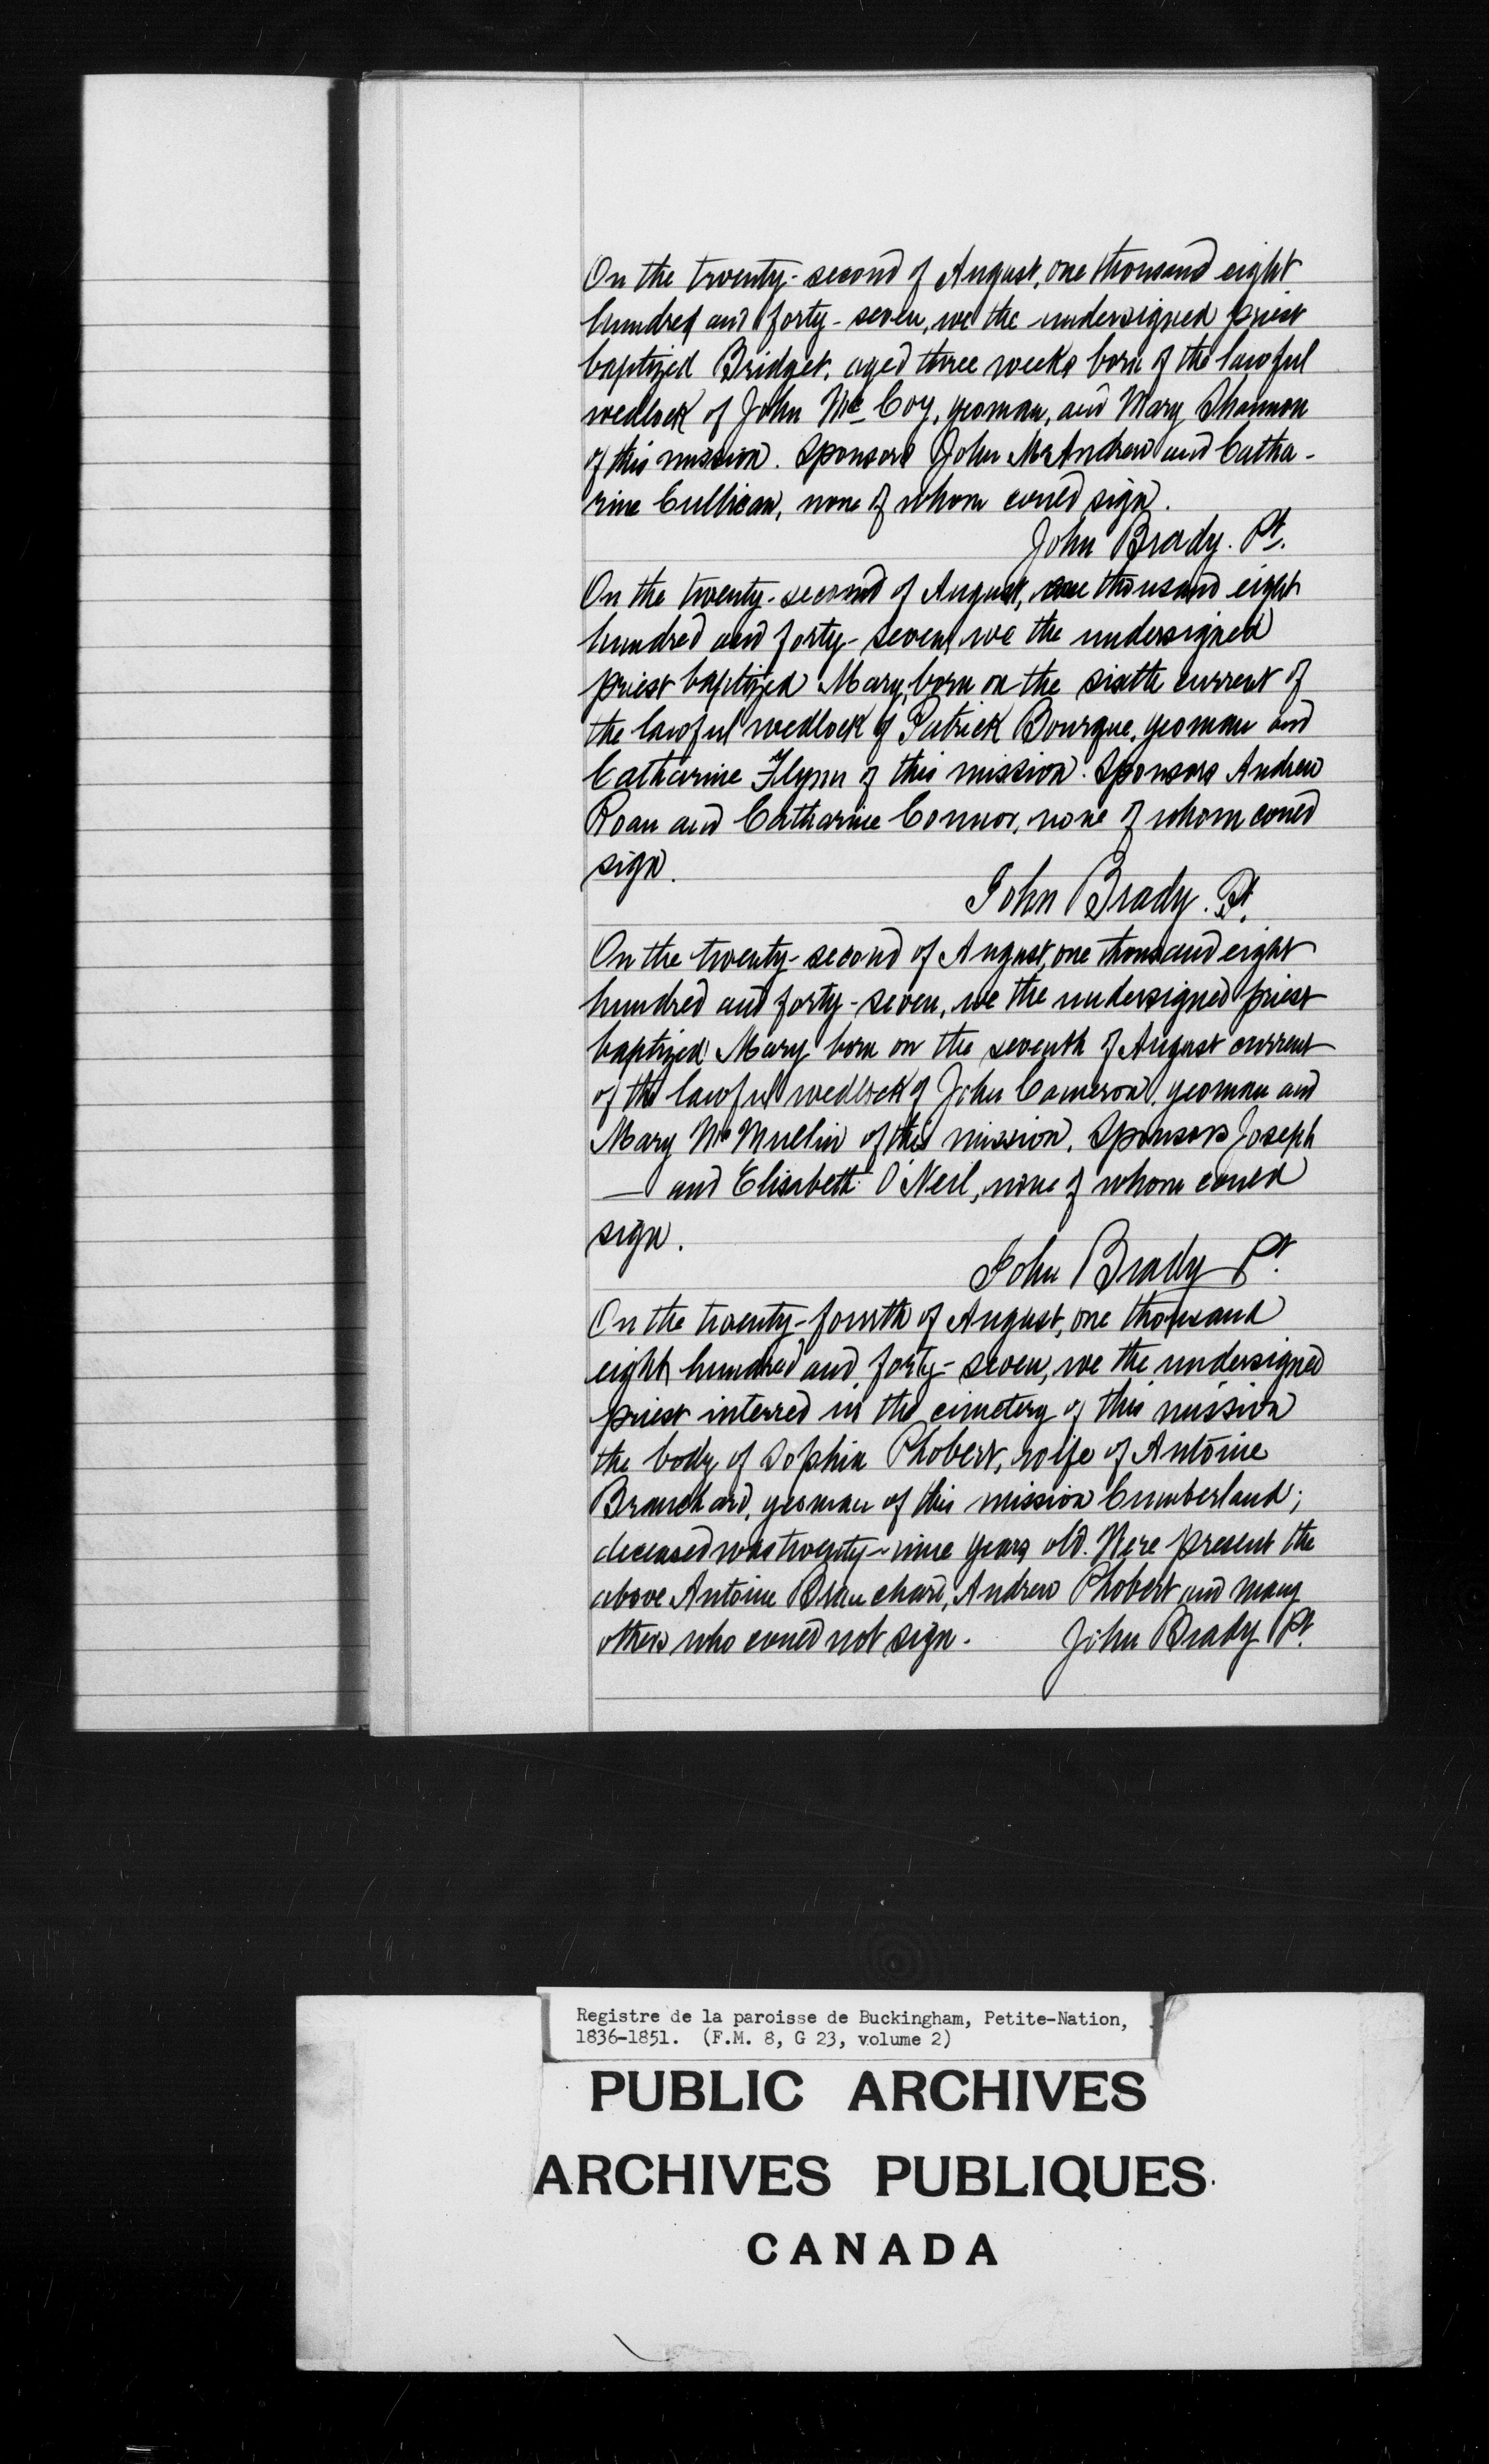 On the twenty-second of August, one thousand eight
hundred and forty-seven, we the undersigned priest
baptized Bridget, aged three weeks born of the lawful
wedlock of John Mc Coy, yeoman, and Mary Shannon
of this mission. Sponsors John McAndrew and Catha-
rine Cullican, none of whom could sign.
John Brady. Pt.
On the twenty-second of August, one thousand eight
hundred and forty-seven, we the undersigned
priest baptized Mary, born on the sixth current of
the lawful wedlock of Patrick Bourque, yeoman and
Catharine Flynn of this mission. Sponsors Andrew
Roan and Catharine Connor, none of whom could
sign.
John Brady. Pt.
On the twenty-second of August, one thousand eight
hundred and forty-seven, we the undersigned priest
baptized Mary born on the seventh of August current
of the lawful wedlock of John Cameron, yeoman and
Mary McMullin of this mission. Sponsors Joseph
— and Elisabeth O'Neil, none of whom could
sign.
John Brady Pt.
On the twenty-fourth of August, one thousand
eight hundred and forty-seven, we the undersigned
priest interred in the cimetery of this mission
the body of Sophia Phobert, wife of Antoine
Branchard, yeoman of this mission Cumberland;
deceased was twenty-nine years old. Were present the
above Antoine Branchard, Andrew Phobert and many
others who could not sign. John Brady Pt.
Registre de la paroisse de Buckingham, Petite-Nation,
1836-1851. (F.M. 8, G 23, volume 2)
PUBLIC ARCHIVES
ARCHIVES PUBLIQUES
CANADA